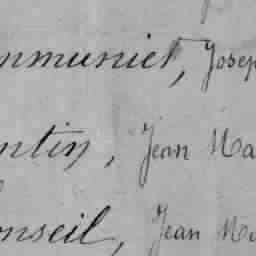 mmuniet, Josep
ntin, Jean Ma
onseil, Jean Ma